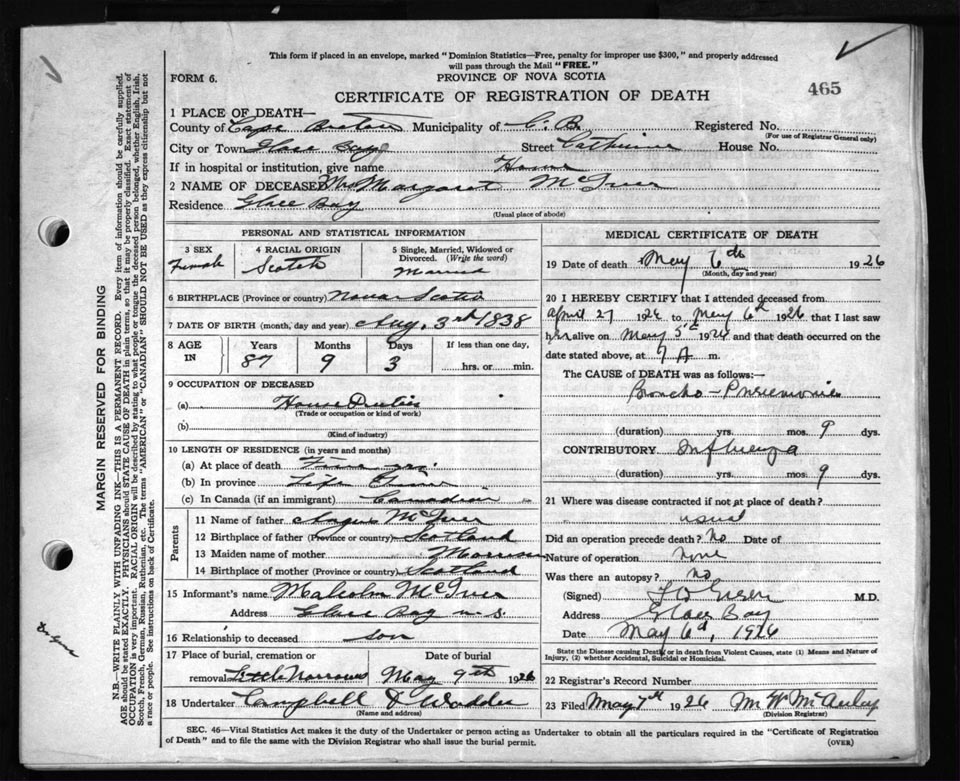 This form if placed in an envelope, marked "Dominion Statistics—Free, penalty for improper use $300," and properly addressed
will pass through the Mail "FREE."
FORM 6.
PROVINCE OF NOVA SCOTIA
465
CERTIFICATE OF REGISTRATION OF DEATH
1 PLACE OF DEATH—
County of Cape Breton Municipality of C. B. Registered No.
(For use of Registrar General only)
City or Town Glace Bay Street Catherine House No.
If in hospital or institution, give name Home
2 NAME OF DECEASED Mrs Margaret McIver
Residence Glace Bay
(Usual place of abode)
PERSONAL AND STATISTICAL INFORMATION
3 SEX 4 RACIAL ORIGIN 5 Single, Married, Widowed or
Divorced. (Write the word)
Female Scotch Married
6 BIRTHPLACE (Province or country) Nova Scotia
7 DATE OF BIRTH (month, day and year) Aug. 3rd 1838
8 AGE IN Years Months Days If less than one day,
87 9 3 hrs. or min.
9 OCCUPATION OF DECEASED
(a) House Duties
(Trade or occupation or kind of work)
(b)
(Kind of industry)
10 LENGTH OF RESIDENCE (in years and months)
(a) At place of death
(b) In province Life Time
(c) In Canada (if an immigrant) Canadian
Parents
11 Name of father Angus McIver
12 Birthplace of father (Province or country) Scotland
13 Maiden name of mother Morrison
14 Birthplace of mother (Province or country) Scotland
15 Informant's name Malcolm McIver
Address Glace Bay N.S.
16 Relationship to deceased son
17 Place of burial, cremation or Date of burial
removal Little Narrows May 9th 1926
18 Undertaker Campbell &
(Name and address)
MEDICAL CERTIFICATE OF DEATH
19 Date of death May 6th 1926
(Month, day and year)
20 I HEREBY CERTIFY that I attended deceased from
April 27 1926 to May 6th 1926 that I last saw
her alive on May 5th 1926 and that death occurred on the
date stated above, at 9 A m.
The CAUSE of DEATH was as follows:—
Broncho-Pneumonia
(duration) yrs. mos. 9 dys.
CONTRIBUTORY Influenza
(duration) yrs. mos. 9 dys.
21 Where was disease contracted if not at place of death?
usual
Did an operation precede death? No Date of
Nature of operation None
Was there an autopsy? No
(Signed) M.D.
Address Glace Bay
Date May 6th, 1926
State the Disease causing Death, or in death from Violent Causes, state (1) Means and Nature of
Injury, (2) whether Accidental, Suicidal or Homicidal.
22 Registrar's Record Number
23 Filed May 7th 1926 M. W. McAulay
(Division Registrar)
SEC. 46—Vital Statistics Act makes it the duty of the Undertaker or person acting as Undertaker to obtain all the particulars required in the "Certificate of Registration
of Death" and to file the same with the Division Registrar who shall issue the burial permit.
(OVER)
MARGIN RESERVED FOR BINDING
N.B.—WRITE PLAINLY WITH UNFADING INK—THIS IS A PERMANENT RECORD. Every item of information should be carefully supplied.
AGE should be stated EXACTLY. PHYSICIANS should STATE CAUSE OF DEATH in plain terms, so that it may be properly classified. Exact statement of
OCCUPATION is very important. RACIAL ORIGIN will be described by stating to what people or tongue the deceased person belonged, whether English, Irish,
Scotch, French, German, Russian, Ruthenian, etc. The terms "AMERICAN" or "CANADIAN" SHOULD NOT BE USED as they express citizenship but not
a race or people. See instructions on back of Certificate.